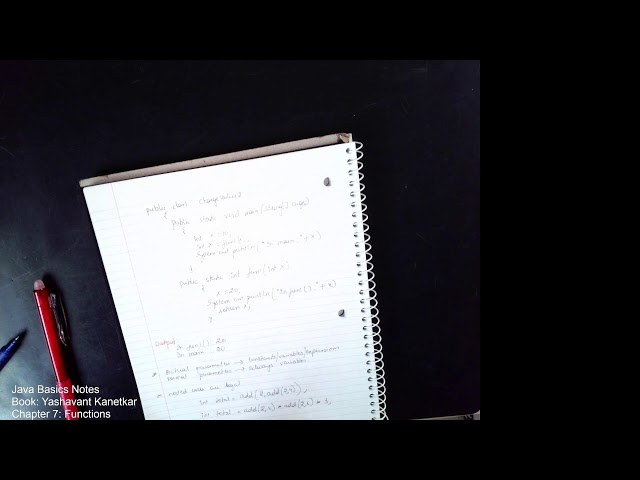 public class changevalue2
{
public static void main (String[] args)
{
int x = 10;
int
System.out.println ("In main.." + x)
}
public static int func1 (int x)
{
x = 20;
System.out.println ("In func1().." + x)
return x;
}
Output
In func1().. 20
In main..
* Actual parameters → constants/variables/expressions
Formal parameters → always variables
* nested calls are legal
int total = add(2, add(3,4));
int total = add(2,4) * add(2,6) *
Java Basics Notes
Book: Yashavant Kanetkar
Chapter 7: Functions